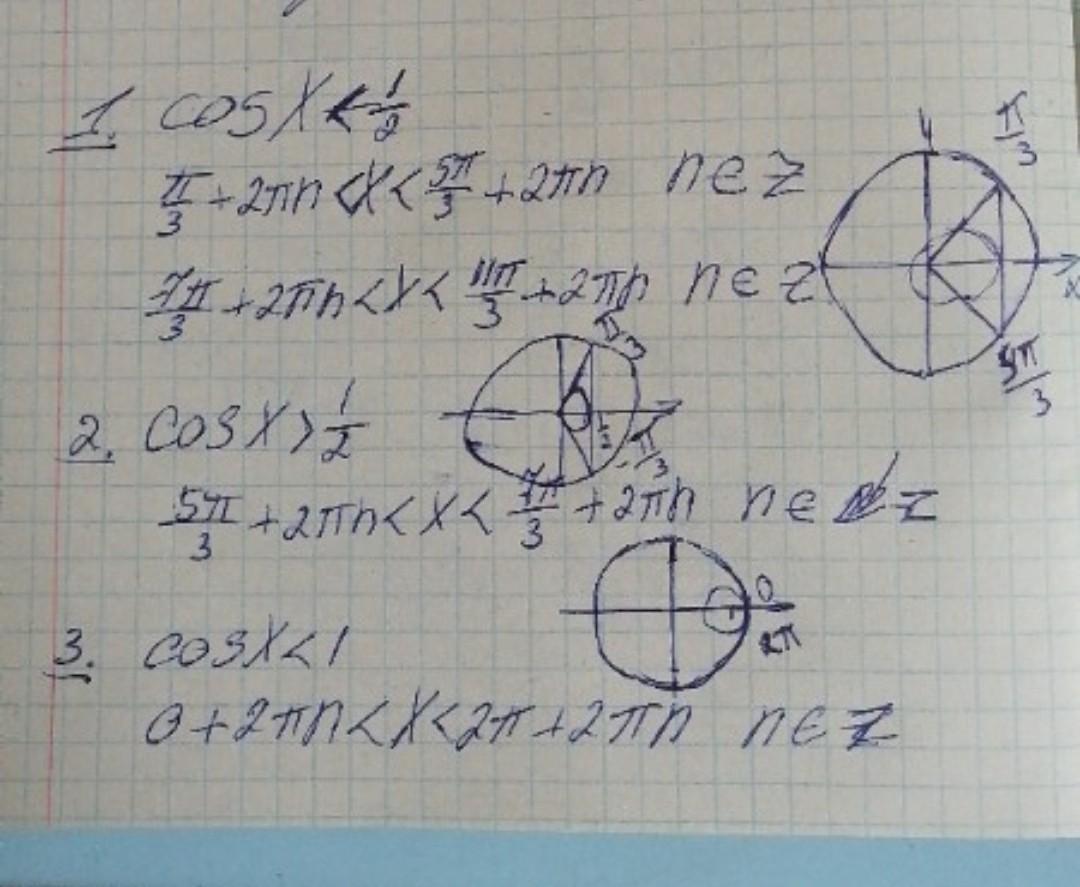 1. cos x < 1/2
π/3 + 2πn < x < 5π/3 + 2πn n ∈ Z
7π/3 + 2πn < x < 11π/3 + 2πn n ∈ Z
y
π/3
x
5π/3
2. cos x > 1/2
π/3
1/2
-π/3
5π/3 + 2πn < x < 7π/3 + 2πn n ∈ Z
3. cos x < 1
0
1
2π
0 + 2πn < x < 2π + 2πn n ∈ Z